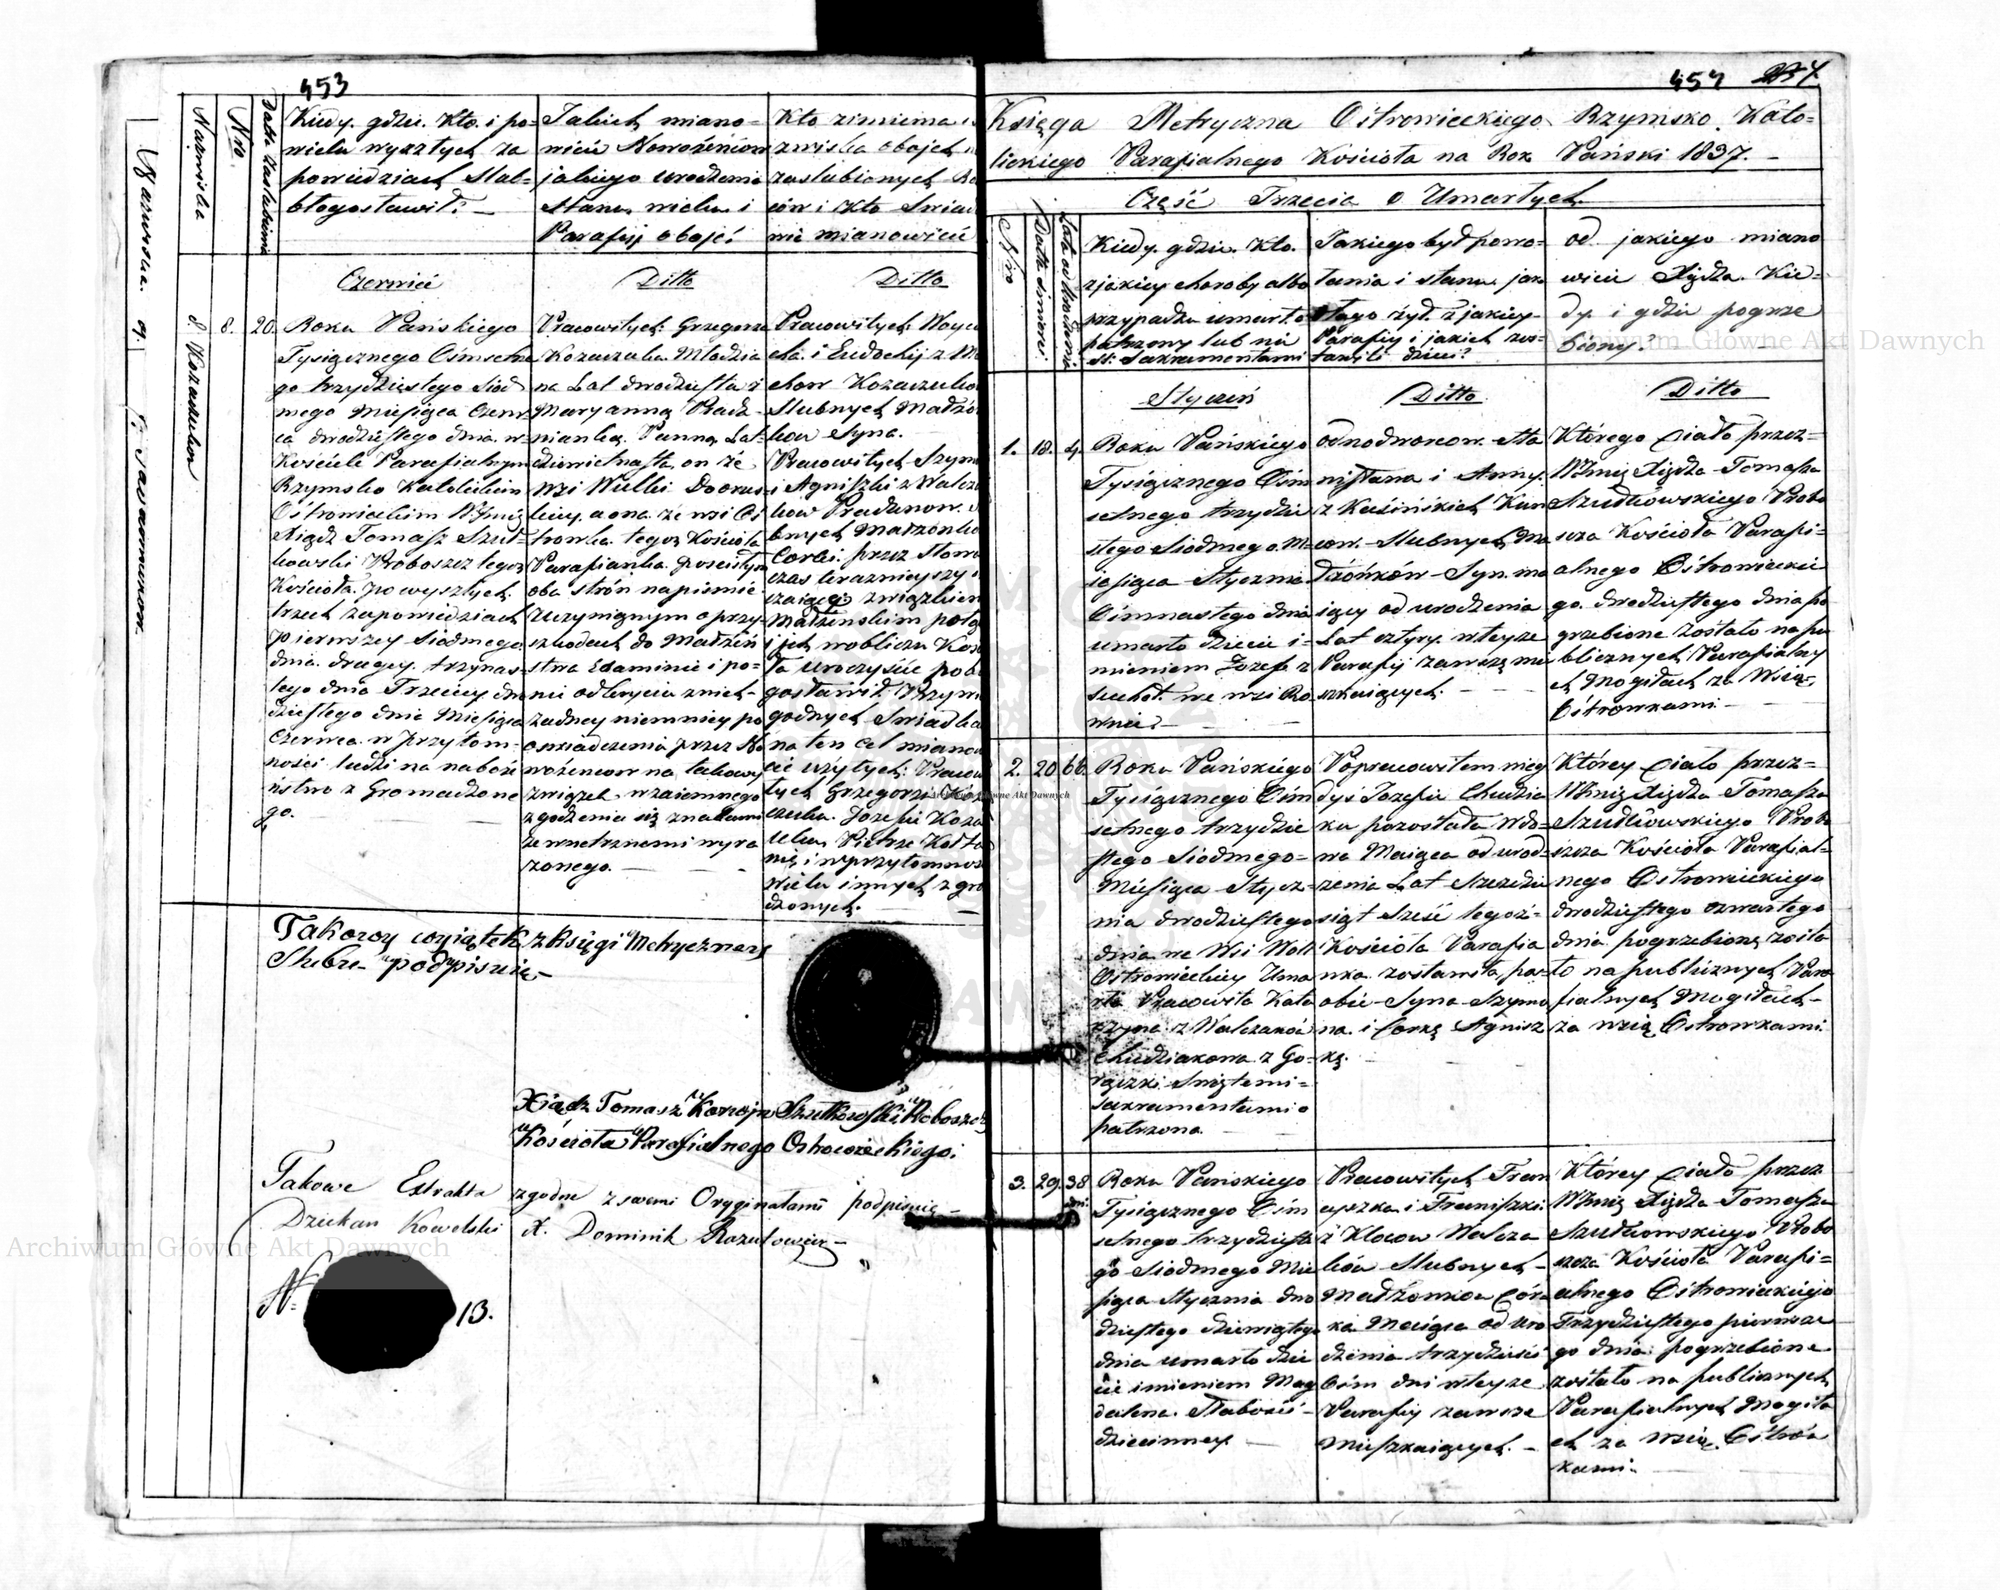 453
Nazwiska
Nro
Datta zaslubienia
Kiedy. gdzie. Kto. i po
wielu wyszłych za
powiedziach Slub
błogosławił? —
Jakich miano=
wicie Nowożeńców
jakiego urodzenia
Stanu, wieku i
Parafiji obojé?
Kto zimiema i
zwiska obojch
zaslubionych Ro
ców i Kto Swiad
wie mianowicie
Czerwiec
Ditto
Ditto
8. Kozaczukow
8.
20.
Roku Pańskiego
Tysięcznego Ośmsetne
go trzydziestego Siod
mego Miesiąca Czerw
ca dwudziestego dnia w
Kościele Parafialnym
Rzymsko Katolickim
Ostrowieckim WJmć
Xiądz Tomasz Szut=
kowski Proboszcz tegoż
Kościoła. powyszłych.
trzech zapowiedziach
pierwszey Siodmego
dnia. drugiey. trzynas=
tego dnia Trzeciey dwu
dziestego dnia Miesiąca
Czerwca. w przytom=
ności ludzi na naboże
ństwo z Gromadzone
go.
Pracowitych: Grzegorza
Kozaczuka. Młodzia
na Lat dwudziestu i
Maryanną Pradz=
nianką. Panną Lat=
dziewietnastu, on ze
Wsi Wulki Dworac=
kiey. a ona. ze wsi Os
trowka. tegoż Kościoła
Parafianka. poscisłym
oba strón na piśmie
uczynionym o przy=
szkodach do Małżeń
stwa Examinie i po=
nie odkryciu zniey=
żadney niemniey po
oswiadczeniu przez No
wożencow na takowy
związek wzaiemnego
zgodzenia się znakami
zewnetrznemi wyra
zonego. —
Pracowitych: Woyc
cha. i Eudochij z M
chow Kozaczukow
Slubnych Małżon
kow Syna.
Pracowitych Szym
i Agniszki z Walcz
kow Pradunow. S
bnych Małżonków
Corkę: przez słowa
czas terazniejszy
czaiące związkiem
Małżenskim połą
i ich wobliczu Kos
ła uroczyście pobł
gosławił. Przy w
godnych Swiadka
na ten cel mianow
cie użytych: Pracow
tych Grzegorzu Koza
czuku. Jozefie Koza
uku, Pietrze Kołta
nię i wprzytomnos
wielu innych zgro
dzonych.
Takowy wyiątek z księgi Metryczney
Slubu podpisuię—
Xiądz Tomasz Korwin Szutkowski Proboszcz
Kościoła Parafialnego Ostrowieckiego.
Takowe Extrakta zgodne z swemi Orygynałami podpisuię—
Dziekan Kowelski X. Dominik Rozułowicz—
N.
13.
457
234.
Księga Metryczna Ostrowieckiego Rzymsko Kato=
lickiego Parafialnego Kościoła na Rok Pański 1837.—
Część Trzecia o Umarłych.
Nro
Datta Śmierci
Lata od Urodzenia
Kiedy. gdzie. Kto.
zjakiey choroby albo
przypadku umarł. o
patrzony lub nie
SS: Sakramentami
Jakiego był powo=
łania i stanu. jak
długo żył. z jakiey
Parafiy i jakich zos=
tawił dzieci?
od jakiego miano
wicie Xiędza. Kie=
dy. i gdzie pogrze
biony?
Styczeń
Ditto
Ditto
1.
18.
4.
Roku Pańskiego
Tysięcznego Ośm
setnego trzydzie
stego Siodmego. M=
iesiąca Stycznia
Ośmnastego dnia
umarło dziecie i=
mieniem Jozef z
suchot. we wsi Ro
wnie.—
odnodworcow. Sta
nisława i Anny.
z Kusińskich Kun
cow. Slubnych Ma
łżonków Syn. ma
iący od urodzenia
Lat cztyry. wteyże
Parafij zawszę mie
szkaiących. —
Którego Ciało przez=
WJmć Xiędza Tomasza
Szudkowskiego Probo
szcza Kościoła Parafi=
alnego Ostrowieckie
go. dwudziestego dnia po
grzebione zostało na pu
blicznych Parafialny
ch Mogiłach za Wsią
Ostrowkami. —
2.
20
66.
Roku Pańskiego
Tysiącznego Ośm
setnego trzydzie
stego Siodmego=
Miesiąca Stycz=
nia dwudziestego
dnia. we Wsi Woli
Ostrowieckiey Uma
rła Pracowita Kata
rzyna z Walczaków
Chudziakowa z Go=
rączki Swiętemi=
sakramentami o
patrzona.
Popracowitem nieg
dyś Jozefie Chudzia
ku pozostała Wdo=
wa Maiąca od urod=
zenia Lat Szesdzie
siąt Sześć tegoż=
Kościoła Parafia
nka. zostawiła po=
obie Syna Szymo
na. i Corkę Agnisz
kę. —
Którey Ciało przez=
WJmć Xiędza Tomasza
Szudkowskiego Probo
szcza Kościoła Parafial=
nego Ostrowieckiego
dwudziestego czwartego
dnia pogrzebione zosta
ło na publicznych Para
fialnych Mogiłach=
za wsią Ostrowkami.
3.
29.
38
dni.
Roku Pańskiego
Tysiącznego Ośm
setnego trzydzieste
go Siodmego Mie
siąca Stycznia dwu
dziestego dziewiątego
dnia umarło dzie
cie imieniem Mag
dalena. Słabości=
dziecinney. —
Pracowitych Fran
ciszka i Franciszki
z Klocow Walcza
ków Slubnych=
Małżonków Cór=
ka Maiąca od uro
dzenia trzydzieści
Ośm dni wteyże
Parafiy zawsze
mieszkaiących. —
Którey Ciało przez
WJmć Xiędza Tomasza
Szudkowskiego Probo
szcza Kościoła Parafi=
alnego Ostrowieckiego
Trzydziestego pierwsze
go dnia. pogrzebione
zostało na publicznych
Parafialnych Mogiła
ch za Wsią Ostrów
kami.
Archiwum Główne Akt Dawnych
Archiwum Główne Akt Dawnych